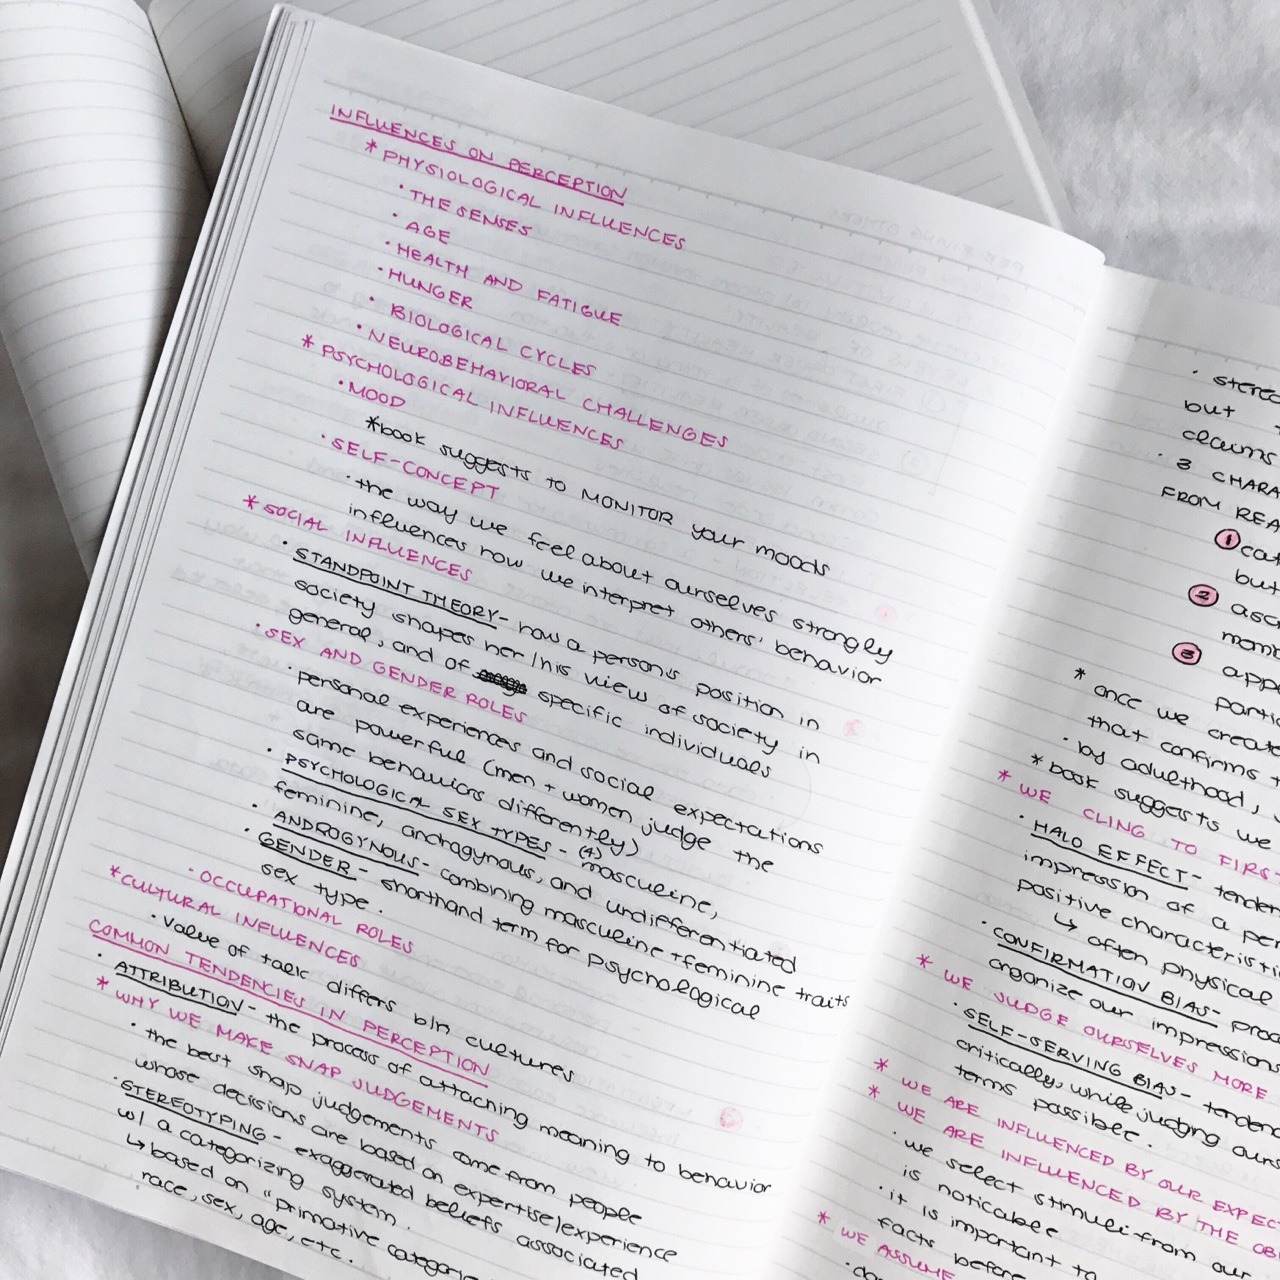 INFLUENCES ON PERCEPTION
* PHYSIOLOGICAL INFLUENCES
· THE SENSES
· AGE
· HEALTH AND FATIGUE
· HUNGER
· BIOLOGICAL CYCLES
· NEUROBEHAVIORAL CHALLENGES
* PSYCHOLOGICAL INFLUENCES
· MOOD
*book suggests to MONITOR your moods
· SELF-CONCEPT
· the way we feel about ourselves strongly
influences how we interpret others' behavior
* SOCIAL INFLUENCES
· STANDPOINT THEORY - how a person's position in
society shapes her/his view of society in
general, and of specific individuals
· SEX AND GENDER ROLES
· personal experiences and social expectations
are powerful (men + women judge the
same behaviors differently)
· PSYCHOLOGICAL SEX TYPES - (4) masculine,
feminine, andragynous, and undifferentiated
· ANDROGYNOUS - combining masculine + feminine traits
· GENDER - shorthand term for psychological
sex type.
· OCCUPATIONAL ROLES
* CULTURAL INFLUENCES
· value of talk differs b/n cultures
COMMON TENDENCIES IN PERCEPTION
· ATTRIBUTION - the process of attaching meaning to behavior
* WHY WE MAKE SNAP JUDGEMENTS
· the best snap judgements come from people
whose decisions are based on expertise/experience
· STEREOTYPING - exaggerated beliefs associated
w/ a categorizing system.
↳ based on "primative categories
race, sex, age, etc.
· stereo
but
claims
· 3 CHARA
FROM REA
① cat
but
② asc
memb
③ app
partic
* once we create
that confirms
· by adulthood,
* book suggests we
* WE CLING TO FIRS
· HALO EFFECT - tenden
impression of a per
positive characteristi
↳ often physical
· CONFIRMATION BIAS - proc
organize our impressions
* WE JUDGE OURSELVES MORE
· SELF-SERVING BIAS - tendenc
critically, while judging ours
terms possible.
* WE ARE INFLUENCED BY OUR EXPEC
* WE ARE INFLUENCED BY THE OB
· we select stimuli from our
is noticable
· it is important to
facts before
* WE ASSUME